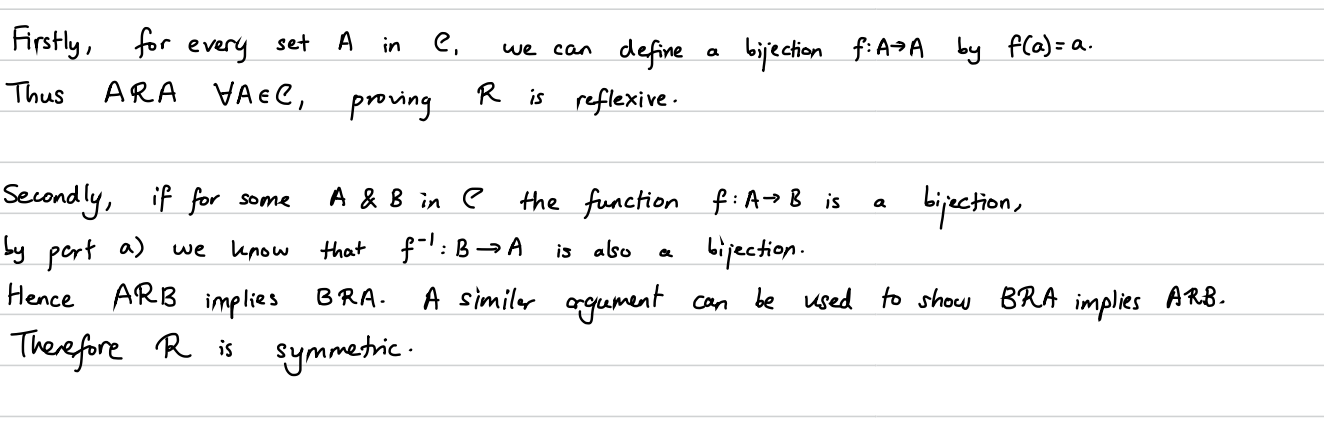 Firstly, for every set A in C, we can define a bijection f: A→A by f(a)=a.
Thus ARA ∀A∈C, proving R is reflexive.
Secondly, if for some A & B in C the function f: A→B is a bijection,
by part a) we know that f⁻¹: B→A is also a bijection.
Hence ARB implies BRA. A similar argument can be used to show BRA implies ARB.
Therefore R is symmetric.